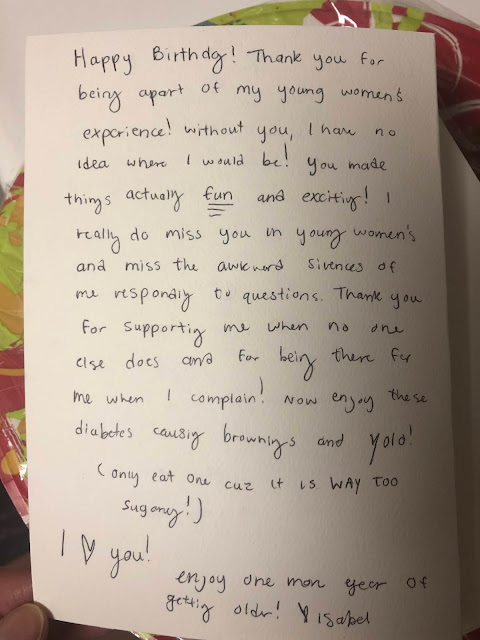 Happy Birthday! Thank you for
being apart of my young women's
experience! without you, I have no
idea where I would be! you made
things actually fun and exciting! I
really do miss you in young women's
and miss the awkward sivences of
me responding to questions. Thank you
for supporting me when no one
else does and for being there for
me when I complain! Now enjoy these
diabetes causing brownings and yolo!
(only eat one cuz it is WAY TOO
sugarey!)
I ♡ you!
enjoy one more year of
getting older! ♡ Isabel